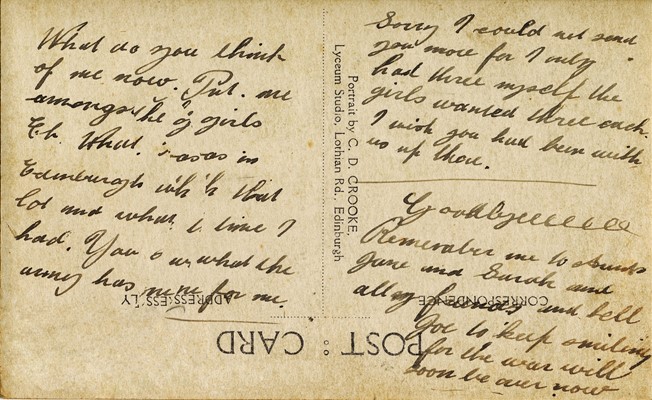 What do you think
of me now. Put. me
amongst the girls
Eh. What. I was in
Edinburgh with that
lot and what a time I
had. You see what the
army has done for me.
Sorry I could not send
you more for I only
had three myself the
girls wanted three each.
I wish you had been with
us up thou.
Goodbyeeeeeee
Remember me to
Jane and Sarah and
all my friends and tell
Joe to keep smiling
for the war will
soon be over now
Portrait by C. D. CROOKE,
Lyceum Studio, Lothian Rd., Edinburgh
POST : CARD
CORRESPONDENCE
ADDRESS